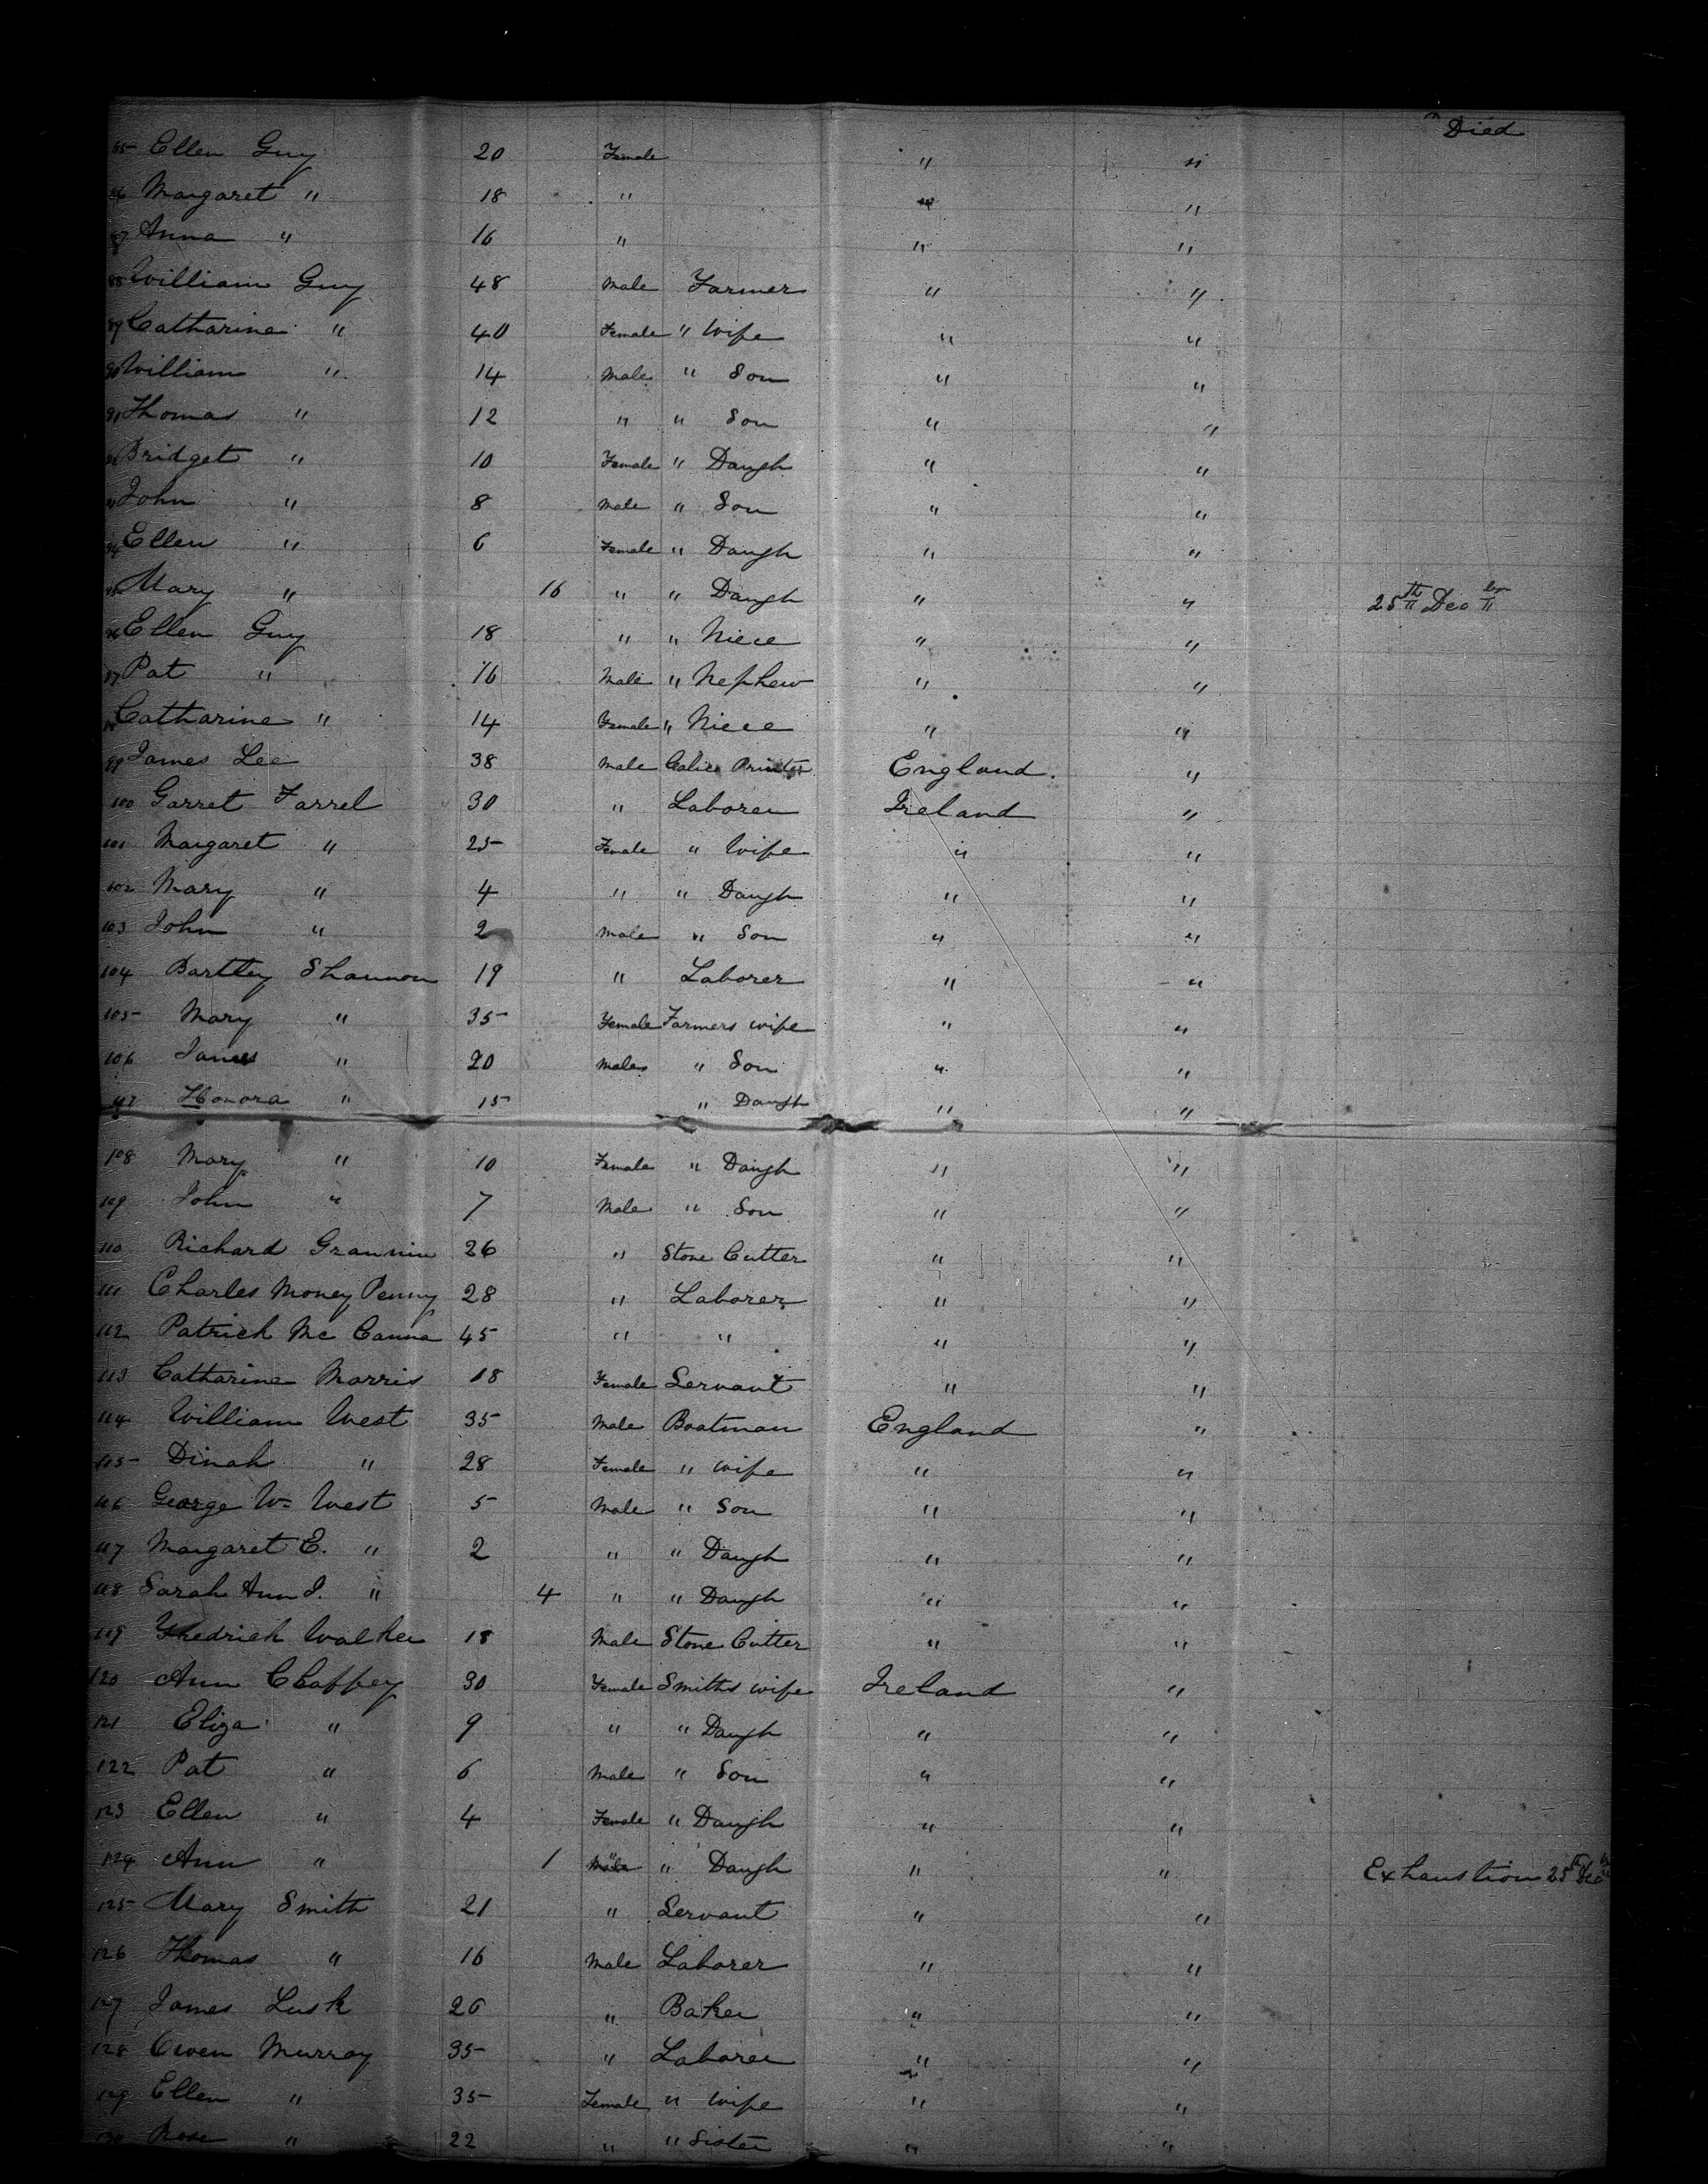 Died
85 Ellen Guy 20 Female " "
86 Margaret " 18 " " "
87 Anna " 16 " " "
88 William Guy 48 Male Farmer " "
89 Catharine " 40 Female " Wife " "
90 William " 14 Male " Son " "
91 Thomas " 12 " " Son " "
92 Bridget " 10 Female " Daugh " "
93 John " 8 Male " Son " "
94 Ellen " 6 Female " Daugh " "
95 Mary " 16 " " Daugh " " 25th Decbr
96 Ellen Guy 18 " " Niece " "
97 Pat " 16 Male " Nephew " "
98 Catharine " 14 Female " Niece " "
99 James Lee 38 Male Calico Printer England "
100 Garret Farrel 30 " Laborer Ireland "
101 Margaret " 25 Female " Wife " "
102 Mary " 4 " " Daugh " "
103 John " 2 Male " Son " "
104 Bartley Shannon 19 " Laborer " "
105 Mary " 35 Female Farmers wife " "
106 James " 20 Male " Son " "
107 Honora " 15 " Daugh " "
108 Mary " 10 Female " Daugh " "
109 John " 7 Male " Son " "
110 Richard Grannin 26 " Stone Cutter " "
111 Charles Money Penny 28 " Laborer " "
112 Patrick Mc Canna 45 " " " "
113 Catharine Morris 18 Female Servant " "
114 William West 35 Male Boatman England "
115 Dinah " 28 Female " wife " "
116 George Wm West 5 Male " Son " "
117 Margaret E. " 2 " " Daugh " "
118 Sarah Ann J. " 4 " " Daugh " "
119 Fredrick Walker 18 Male Stone Cutter " "
120 Ann Chaffey 30 Female Smiths wife Ireland "
121 Eliza " 9 " " Daugh " "
122 Pat " 6 Male " Son " "
123 Ellen " 4 Female " Daugh " "
124 Ann " 1 " " Daugh " " Exhaustion 25th Decbr
125 Mary Smith 21 " Servant " "
126 Thomas " 16 Male Laborer " "
127 James Lusk 26 " Baker " "
128 Owen Murray 35 " Laborer " "
129 Ellen " 35 Female " wife " "
130 Rose " 22 " " Sister " "